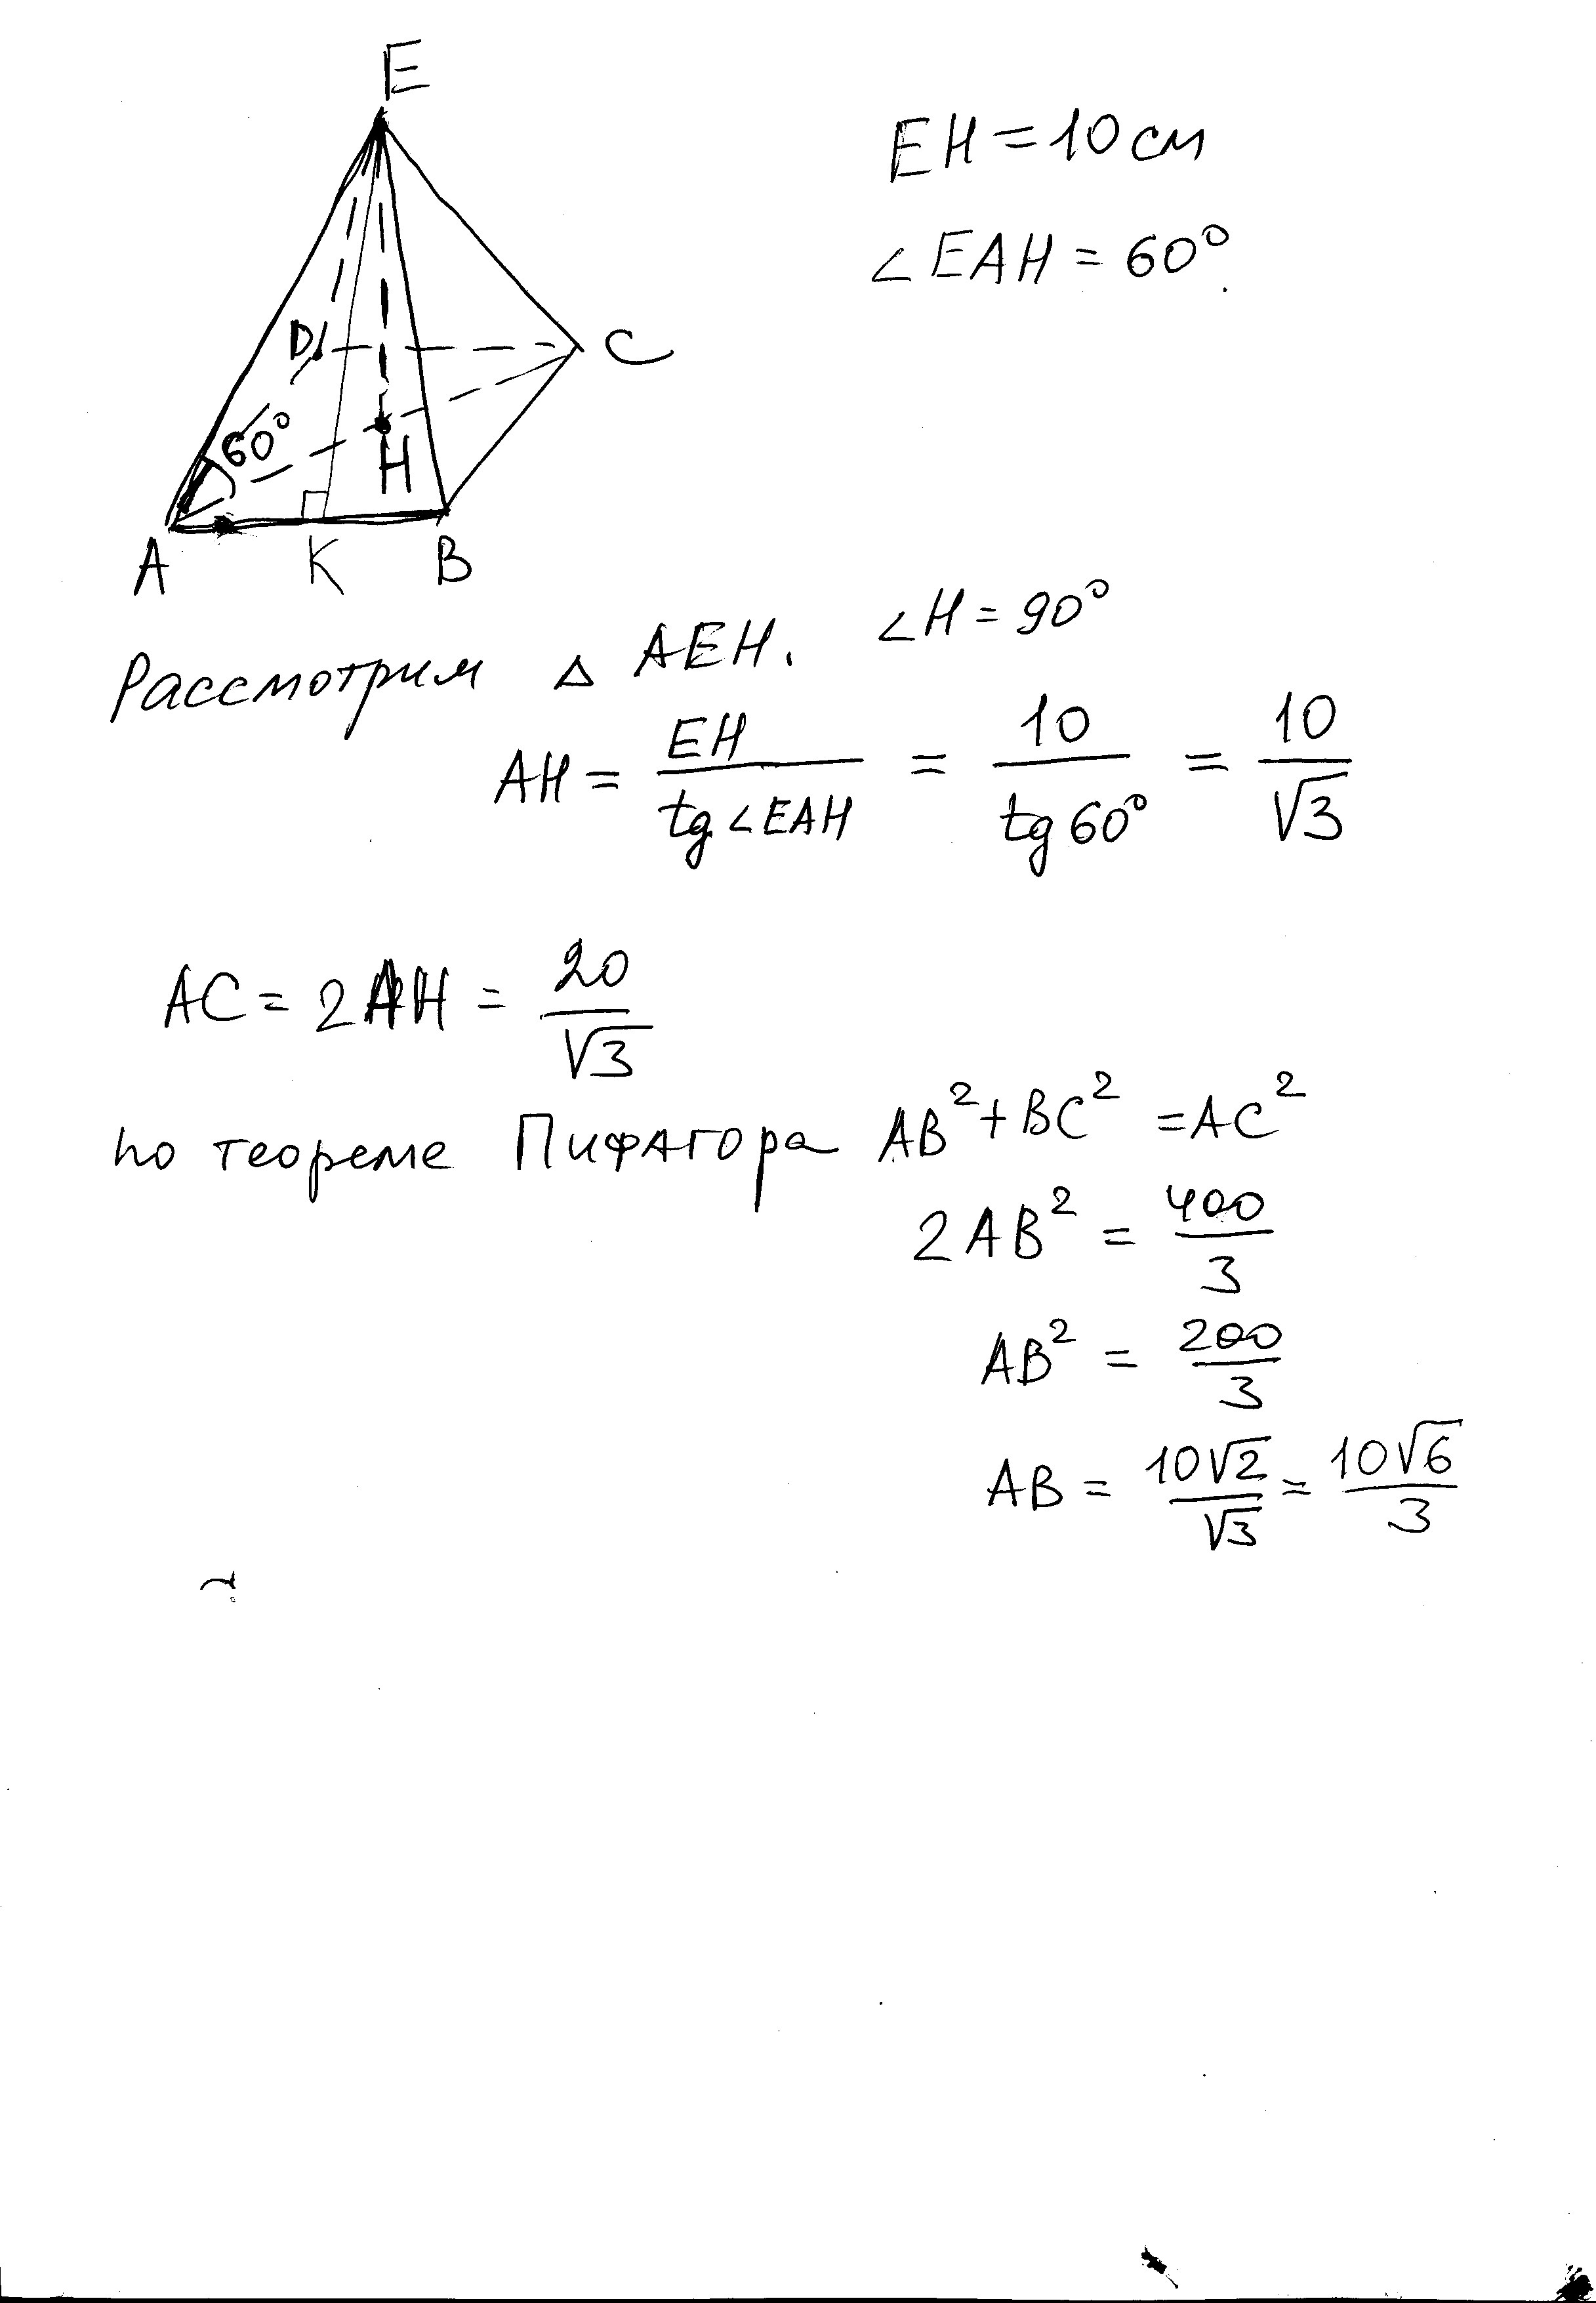 E
EH = 10 см
∠EAH = 60°.
D
C
60°
H
A
K
B
Рассмотрим △ AEH. ∠H = 90°
AH = EH / tg∠EAH = 10 / tg60° = 10 / √3
AC = 2AH = 20 / √3
по теореме Пифагора AB² + BC² = AC²
2AB² = 400 / 3
AB² = 200 / 3
AB = 10√2 / √3 = 10√6 / 3